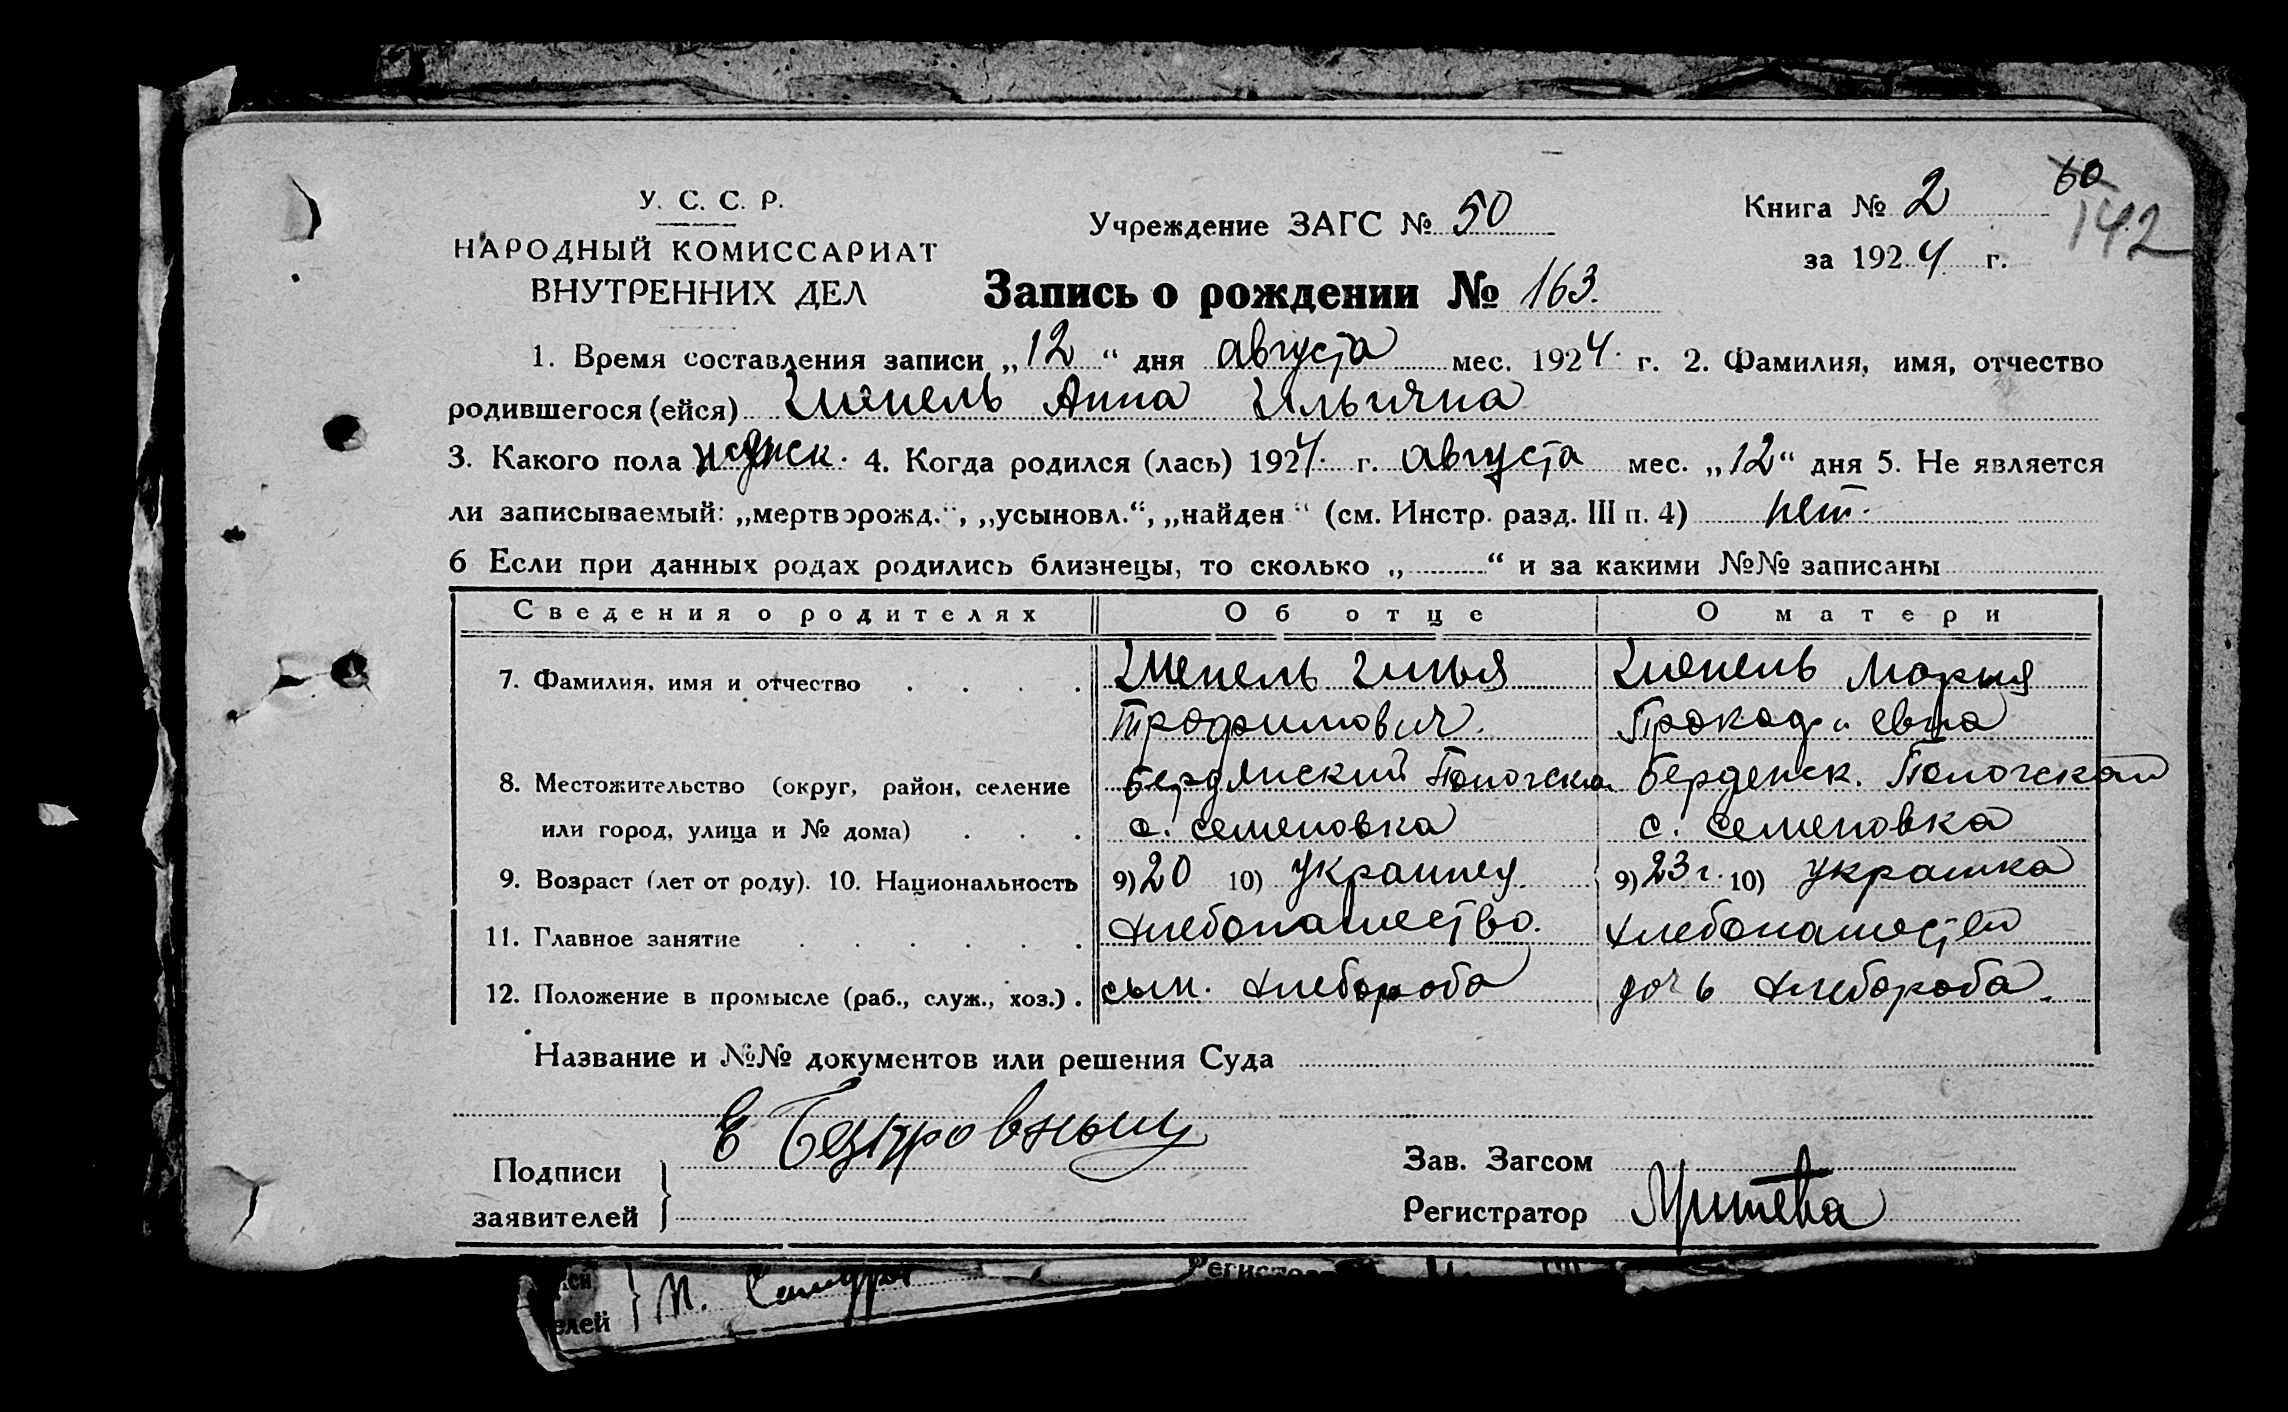 60
У. С. С. Р.
НАРОДНЫЙ КОМИССАРИАТ
ВНУТРЕННИХ ДЕЛ
Учреждение ЗАГС № 50
Книга № 2
142
за 1924 г.
Запись о рождении № 163.
1. Время составления записи „12“ дня августа мес. 1924. г. 2. Фамилия, имя, отчество
родившегося (ейся) Шепель Анна Ильична
3. Какого пола женск. 4. Когда родился (лась) 1924. г. августа мес. „12“ дня 5. Не является
ли записываемый: „мертворожд.“, „усыновл.“, „найден“ (см. Инстр. разд. III п. 4) нет.
6 Если при данных родах родились близнецы, то сколько „ “ и за какими №№ записаны
Сведения о родителях Об отце О матери
7. Фамилия, имя и отчество Шепель Илья Шепель Мария
Трофимович.
8. Местожительство (округ, район, селение Бердянский Берденск. Пологской
или город, улица и № дома) с. Семеновка с. Семеновка
9. Возраст (лет от роду). 10. Национальность 9) 20 10) Украинец 9) 23 г. 10) Украинка
11. Главное занятие хлебопашество.
12. Положение в промысле (раб., служ., хоз.) . сын. хлебороба дочь хлебороба.
Название и №№ документов или решения Суда
Подписи
заявителей
Зав. Загсом
Регистратор
елей